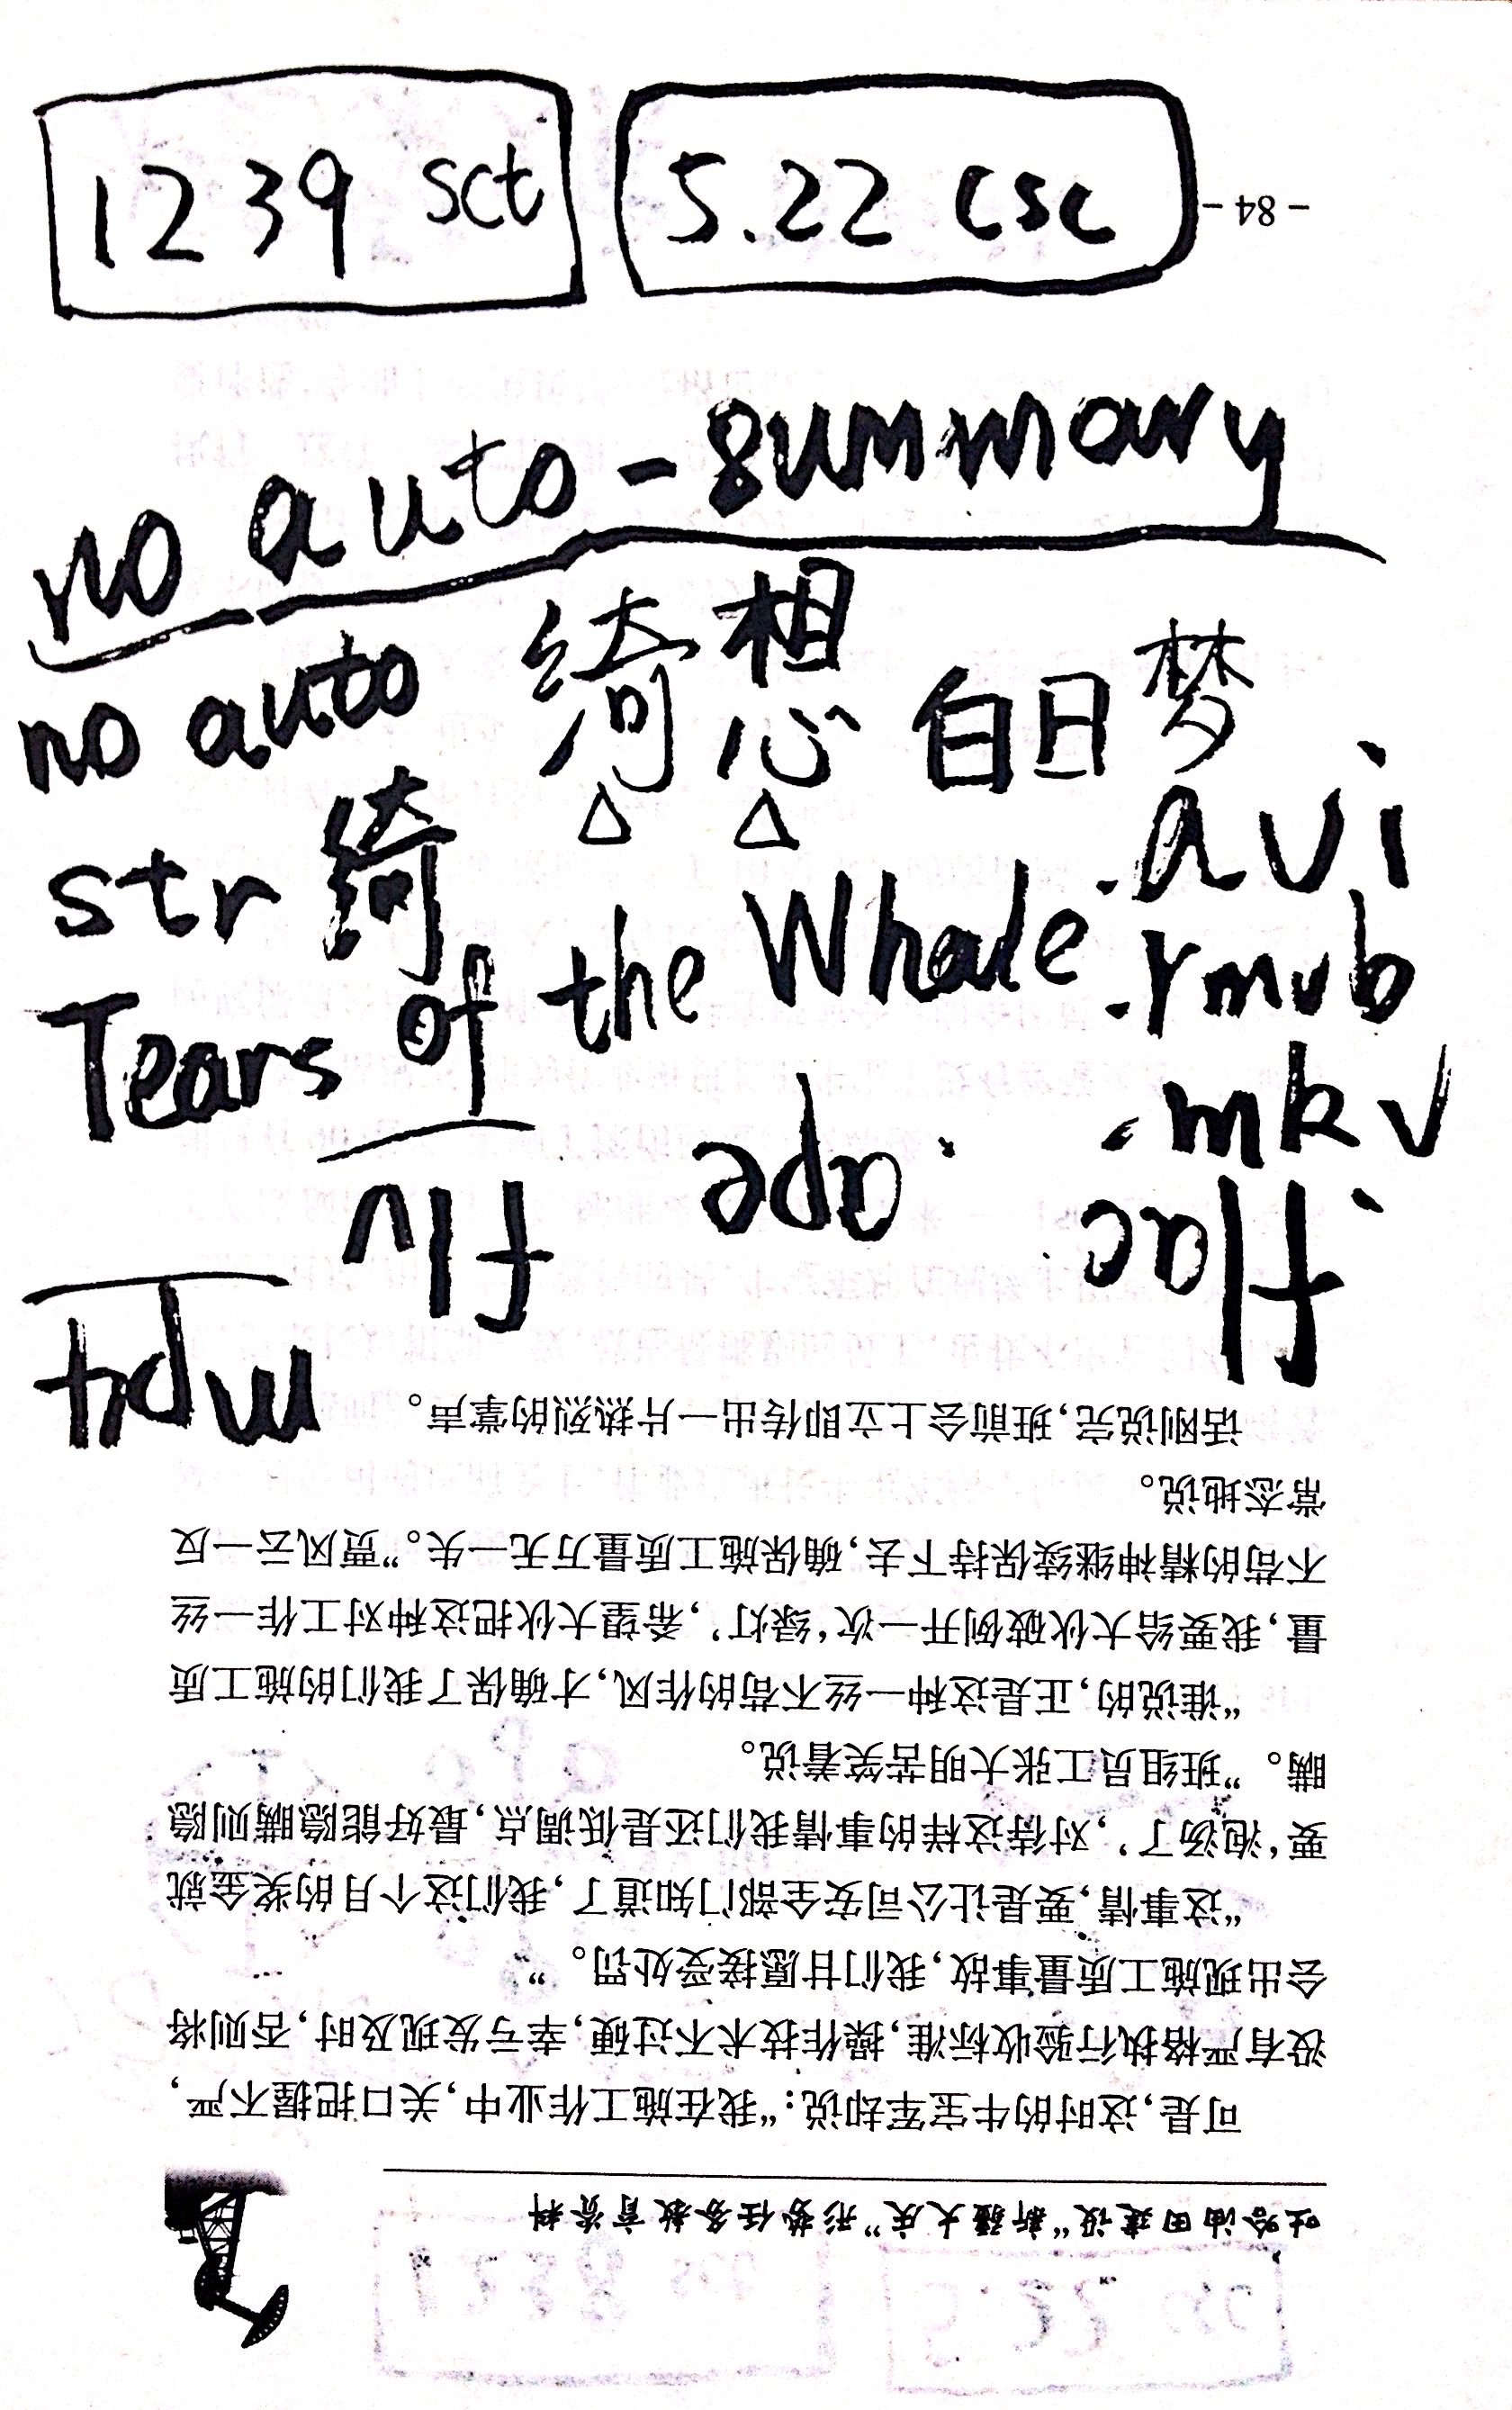 1239 sct
5.22 csc
- 84 -
no auto-summary
no auto 绮想白日梦
str 绮
.avi
Tears of the Whale
.rmvb
.mkv
.flac
.ape
flv
mp4
吐哈油田建设“新疆大庆”形势任务教育资料
可是,这时的牛宝军却说:“我在施工作业中,关口把握不严,
没有严格执行验收标准,操作技术不过硬,幸亏发现及时,否则将
会出现施工质量事故,我们甘愿接受处罚。”
“这事情,要是让公司安全部门知道了,我们这个月的奖金就
要‘泡汤了’,对待这样的事情我们还是低调点,最好能隐瞒则隐
瞒。”班组员工张大明苦笑着说。
“谁说的,正是这种一丝不苟的作风,才确保了我们的施工质
量,我要给大伙破例开一次‘绿灯’,希望大伙把这种对工作一丝
不苟的精神继续保持下去,确保施工质量万无一失。”贾风云一反
常态地说。
话刚说完,班前会上立即传出一片热烈的掌声。